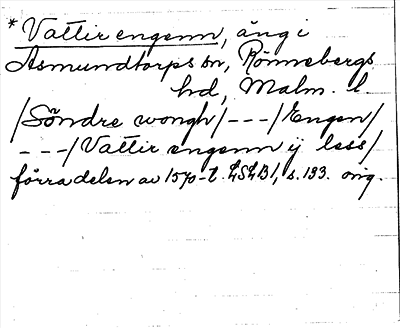 * Vattir engenn, äng i
Asmundtorps sn, Rönnebergs
hd, Malm. l.
/Söndre wongh/---/Engen/
---/Vattir engenn ij less/
förra delen av 1570-t. LSLB1, s. 133. orig.